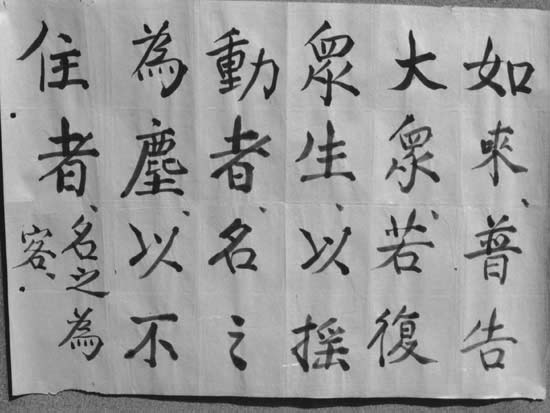 如來、普告
大眾、若復
眾生、以搖
動者、名之
為塵、以不
住者、名之為
客、